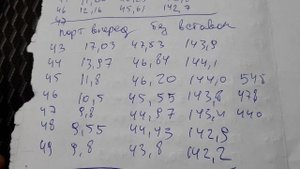 46 12,16 45,61 142,7
47
порт вперед без вставок
43 17,03 47,53 143,9
44 13,97 46,84 144,1
45 11,8 46,20 144,0 545
46 10,5 45,55 143,8 478
47 9,8 44,97 143,4 440
48 9,55 44,43 142,9
49 9,8 43,8 142,2